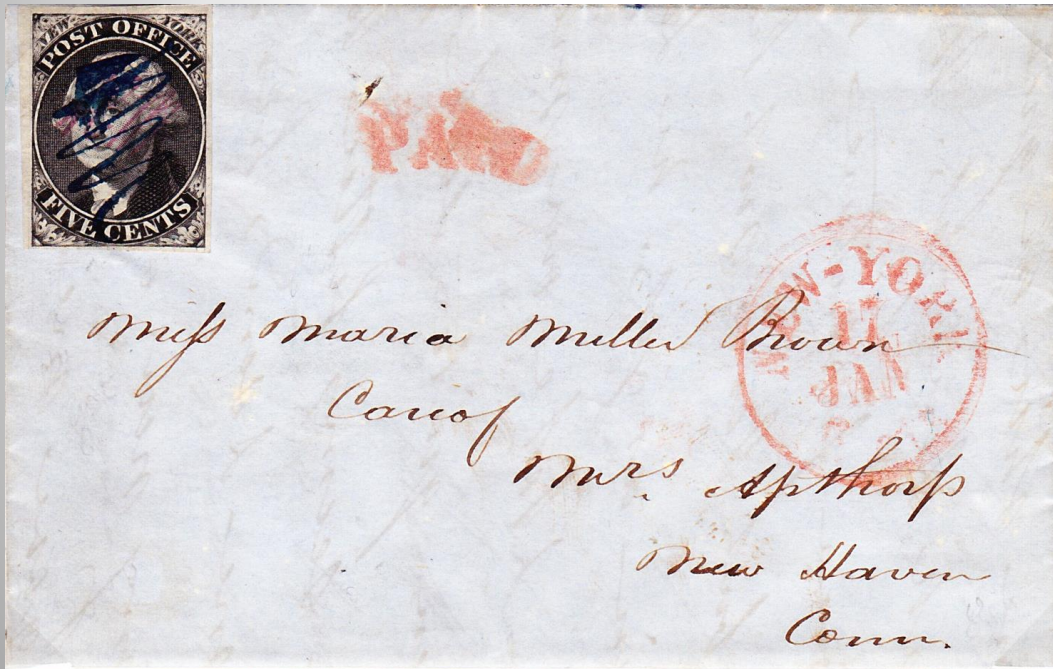 NEW YORK
POST OFFICE
FIVE CENTS
PAID
NEW-YORK
17
Miss Maria Miller Brown
Care of
Mrs. Apthorp
New Haven
Conn.